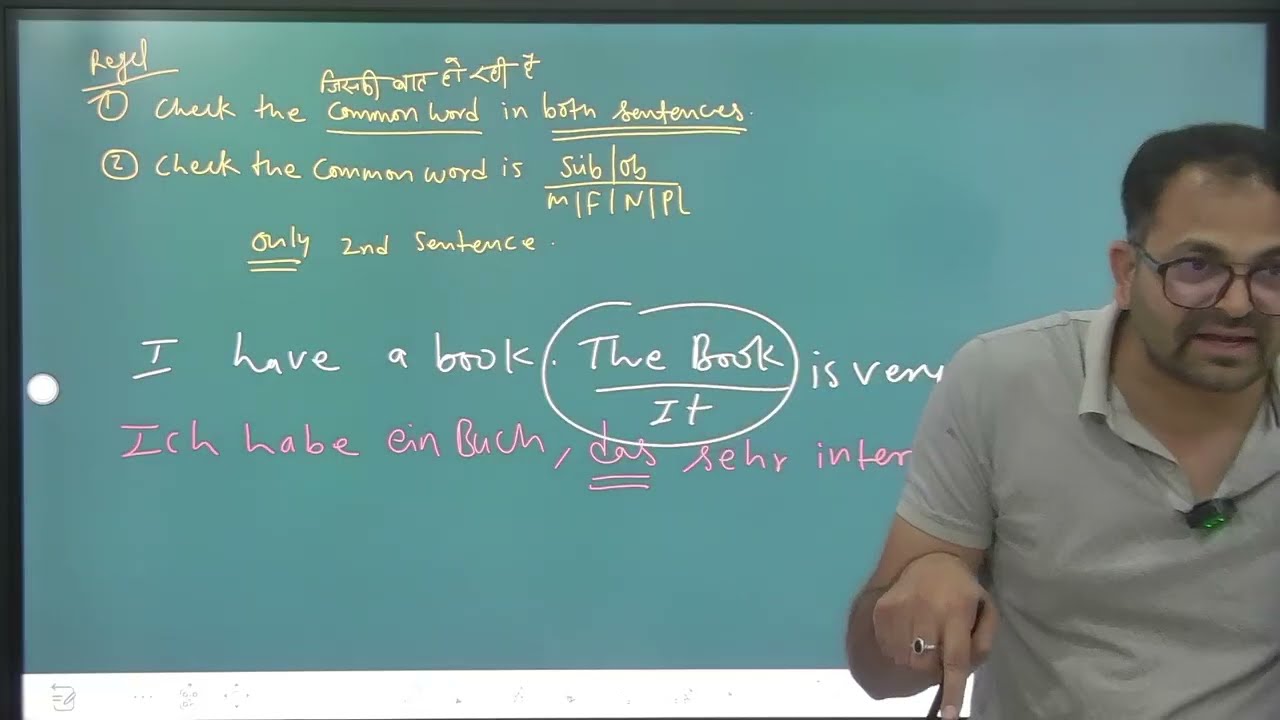 Regel
जिसकी बात हो रही है
① Check the Common word in both sentences.
② Check the Common word is Sub|ob
M|F|N|PL
only 2nd Sentence.
I have a book. The Book is very
It
Ich habe ein Buch, das sehr inter